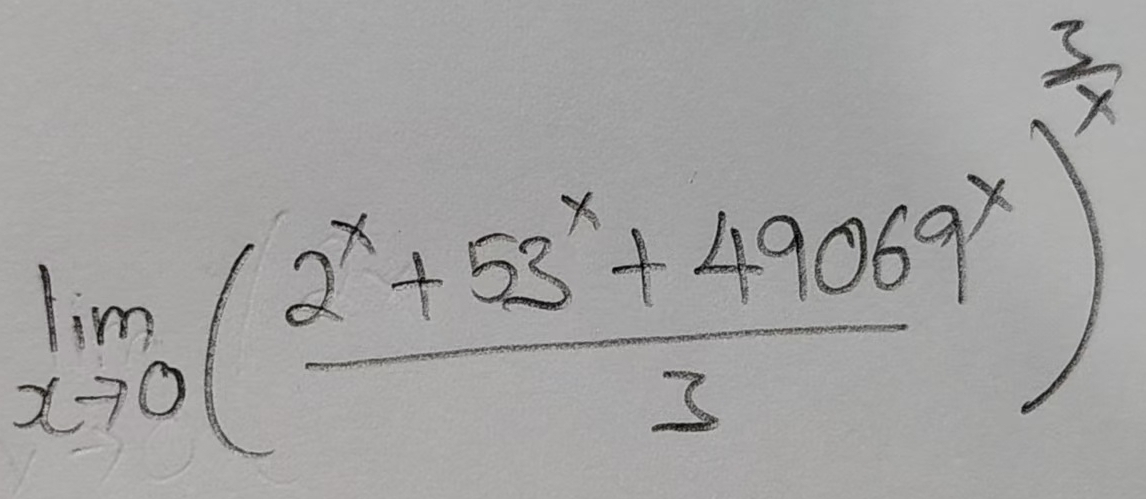 lim x→0 ( (2^x + 53^x + 49069^x) / 3 )^(3/x)